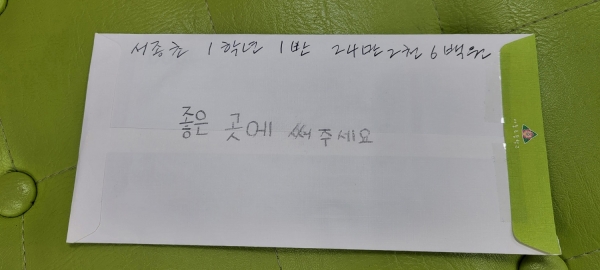 서종초 1학년 1반 24만 2천 6백원
좋은 곳에 써주세요